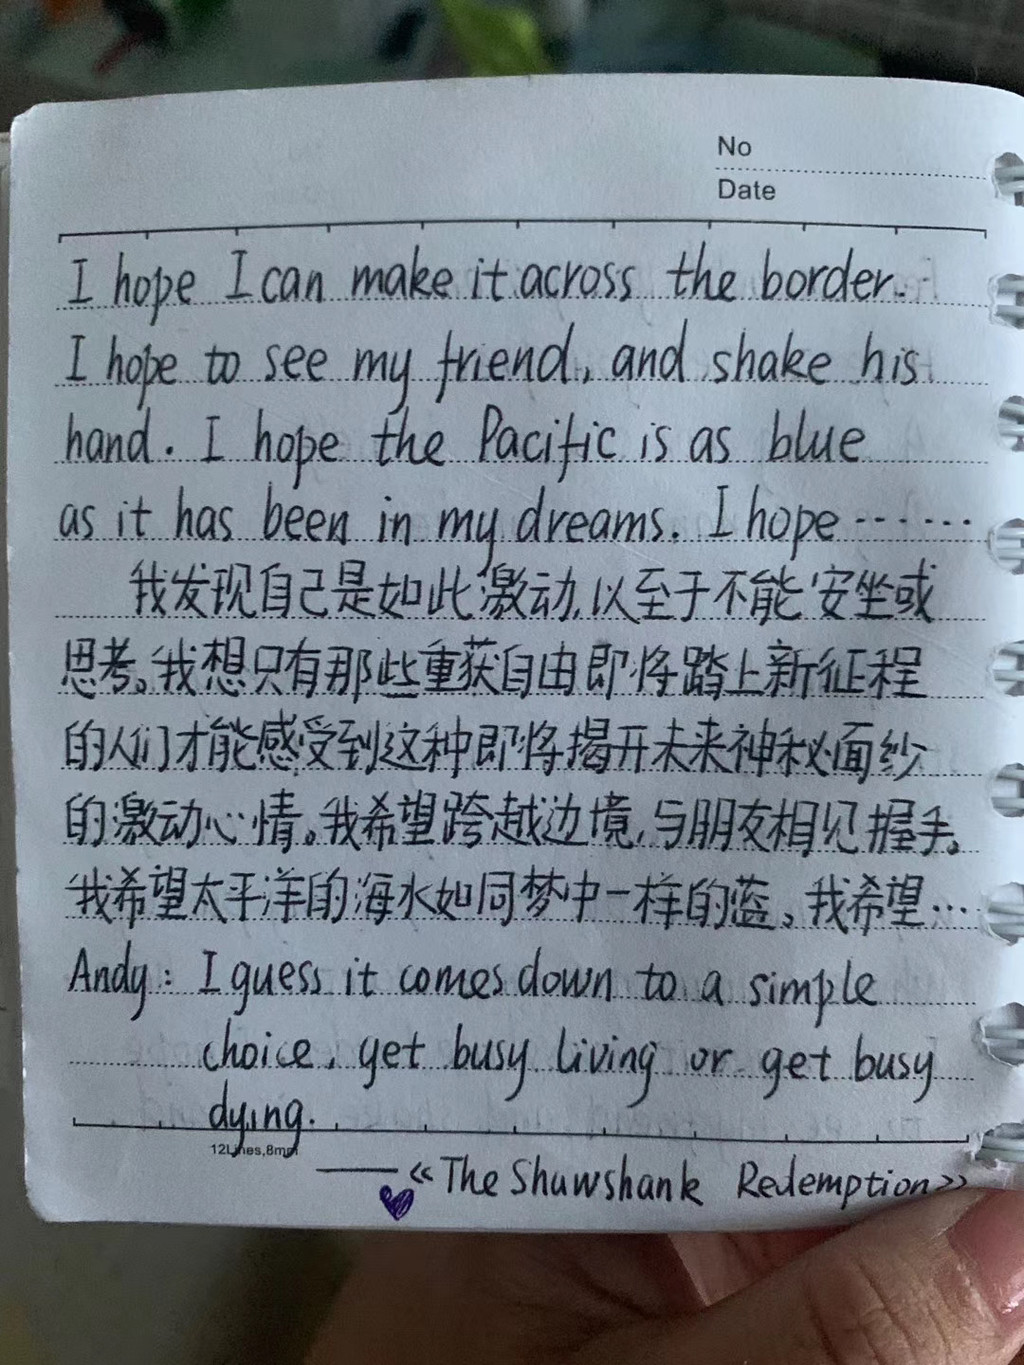 No
Date
I hope I can make it across the border.
I hope to see my friend, and shake his
hand. I hope the Pacific is as blue
as it has been in my dreams. I hope……
我发现自己是如此激动,以至于不能安坐或
思考。我想只有那些重获自由即将踏上新征程
的人们才能感受到这种即将揭开未来神秘面纱
的激动心情。我希望跨越边境,与朋友相见握手。
我希望太平洋的海水如同梦中一样的蓝,我希望…
Andy: I guess it comes down to a simple
choice, get busy living or get busy
dying.
12Lines,8mm
——《The Shawshank Redemption》